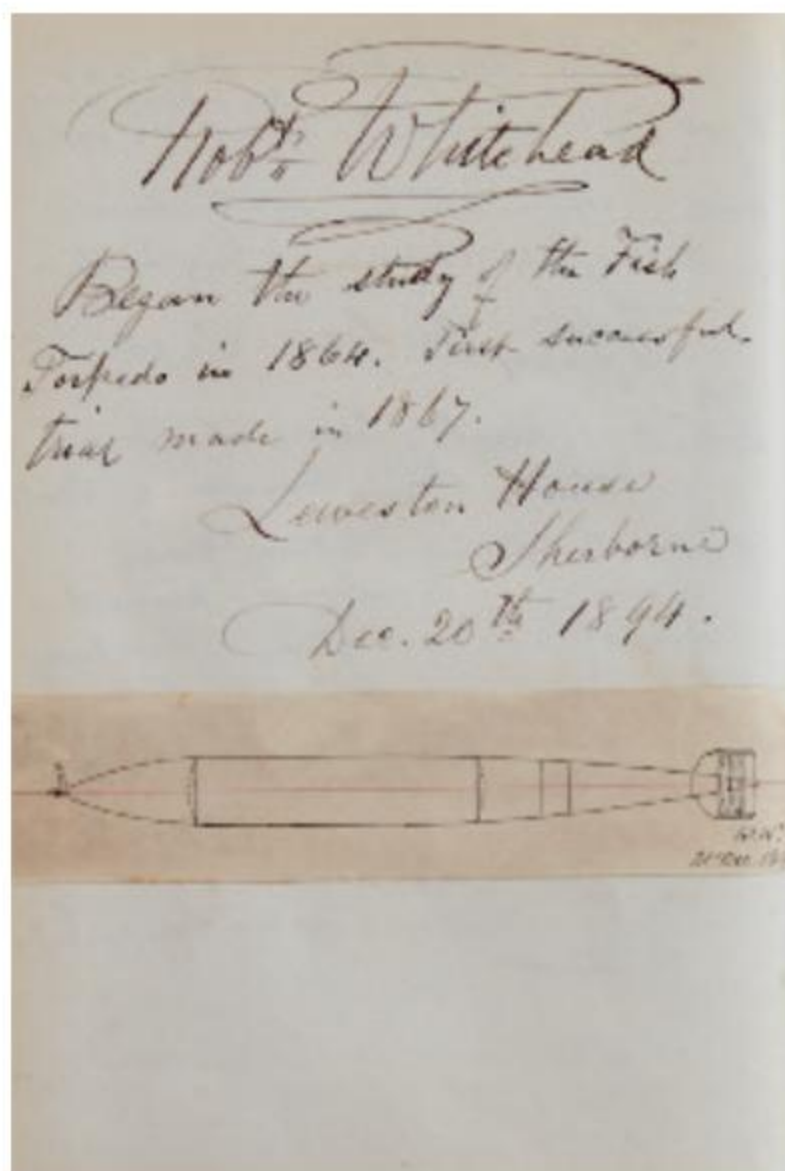 Robt. Whitehead
Began the study of the Fish
Torpedo in 1864. First successful
trial made in 1867.
Leweston House
Sherborne
Dec. 20th 1894.